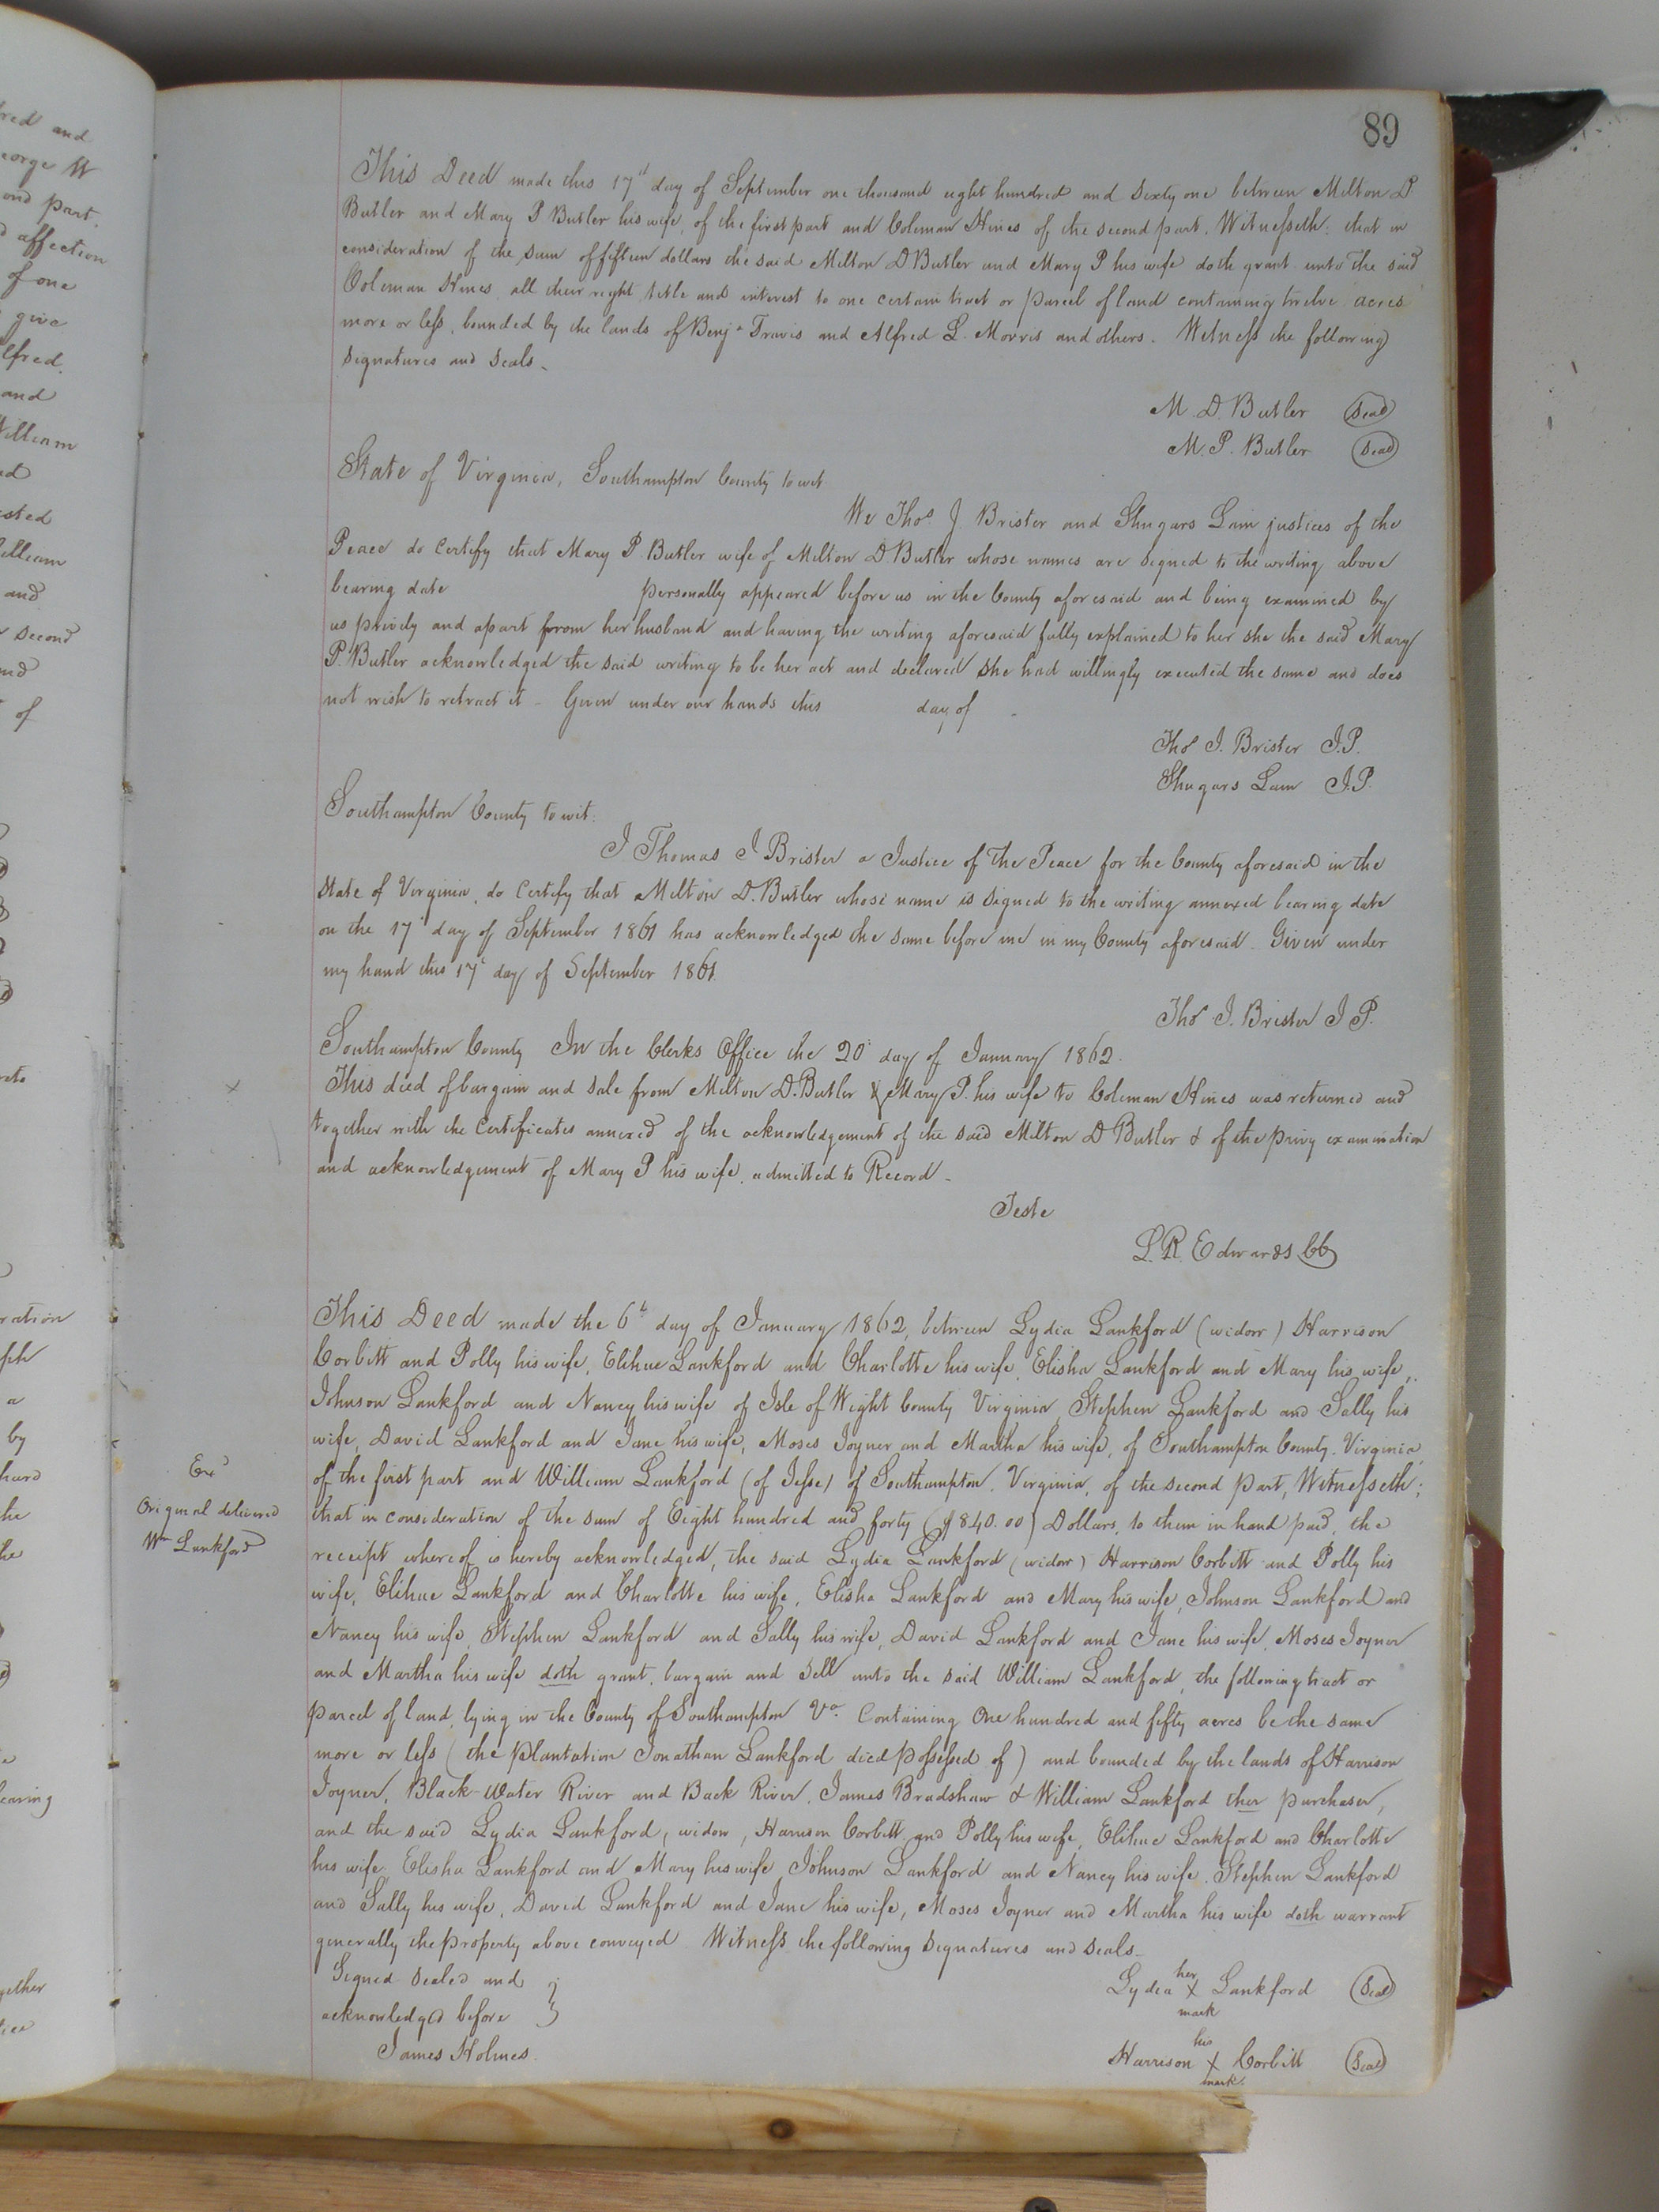 89
This Deed made this 17th day of September one thousand eight hundred and sixty one between Milton D
Butler and Mary P Butler his wife, of the first part and Coleman Hines of the second part. Witnesseth: that in
consideration of the sum of fifteen dollars the said Milton D Butler and Mary P his wife doth grant unto the said
Coleman Hines all their right title and interest to one certain tract or parcel of land containing twelve acres
more or less, bounded by the lands of Benja Travis and Alfred L. Morris and others. Witness the following
signatures and seals.
M. D. Butler Seal
M. P. Butler Seal
State of Virginia, Southampton County to wit
We Thos J. Brister and Shugars Lain justices of the
Peace do certify that Mary P Butler wife of Milton D. Butler whose names are signed to the writing above
bearing date personally appeared before us in the County aforesaid and being examined by
us privily and apart from her husband and having the writing aforesaid fully explained to her she the said Mary
P. Butler acknowledged the said writing to be her act and declared she had willingly executed the same and does
not wish to retract it - Given under our hands this day of -
Thos J. Brister J.P.
Shugars Lain J.P.
Southampton County to wit:
I Thomas J Brister a Justice of the Peace for the County aforesaid in the
State of Virginia, do certify that Milton D. Butler whose name is signed to the writing annexed bearing date
on the 17th day of September 1861 has acknowledged the same before me in my County aforesaid. Given under
my hand this 17th day of September 1861.
Thos J. Brister J P.
Southampton County In the Clerks Office the 20th day of January 1862.
This deed of bargain and sale from Milton D. Butler & Mary P. his wife to Coleman Hines was returned and
together with the certificates annexed of the acknowledgement of the said Milton D Butler & of the privy examination
and acknowledgement of Mary P his wife, admitted to Record -
Teste
L. R. Edwards CC
This Deed made the 6th day of January 1862, between Lydia Lankford (widow) Harrison
Corbitt and Polly his wife, Elihue Lankford and Charlotte his wife, Elisha Lankford and Mary his wife,
Johnson Lankford and Nancy his wife of Isle of Wight County Virginia, Stephen Lankford and Sally his
wife, David Lankford and Jane his wife, Moses Joyner and Martha his wife, of Southampton County. Virginia,
of the first part and William Lankford (of Jesse) of Southampton, Virginia, of the second part, Witnesseth;
Exd
Original delivered
Wm Lankford
that in consideration of the sum of Eight hundred and forty ($840.00) Dollars, to them in hand paid, the
receipt whereof is hereby acknowledged, the said Lydia Lankford (widow) Harrison Corbitt and Polly his
wife, Elihue Lankford and Charlotte his wife, Elisha Lankford and Mary his wife, Johnson Lankford and
Nancy his wife, Stephen Lankford and Sally his wife, David Lankford and Jane his wife, Moses Joyner
and Martha his wife doth grant, bargain and sell unto the said William Lankford, the following tract or
parcel of land, lying in the County of Southampton Va. Containing One hundred and fifty acres be the same
more or less (the plantation Jonathan Lankford died possessed of) and bounded by the lands of Harrison
Joyner, Black-Water River and Back River, James Bradshaw & William Lankford ther purchaser,
and the said Lydia Lankford, widow, Harrison Corbitt and Polly his wife, Elihue Lankford and Charlotte
his wife, Elisha Lankford and Mary his wife Johnson Lankford and Nancy his wife. Stephen Lankford
and Sally his wife, David Lankford and Jane his wife, Moses Joyner and Martha his wife doth warrant
generally the property above conveyed. Witness the following signatures and seals.
Signed sealed and
acknowledged before
James Holmes.
her
Lydia X Lankford Seal
mark
his
Harrison X Corbitt Seal
mark.
red and
eorge W
ond part
affection
of one
give
lfred.
and
William
ed
sted
illiam
and
second
and
of
ration
ph
a
by
hard
he
he
earing
gether